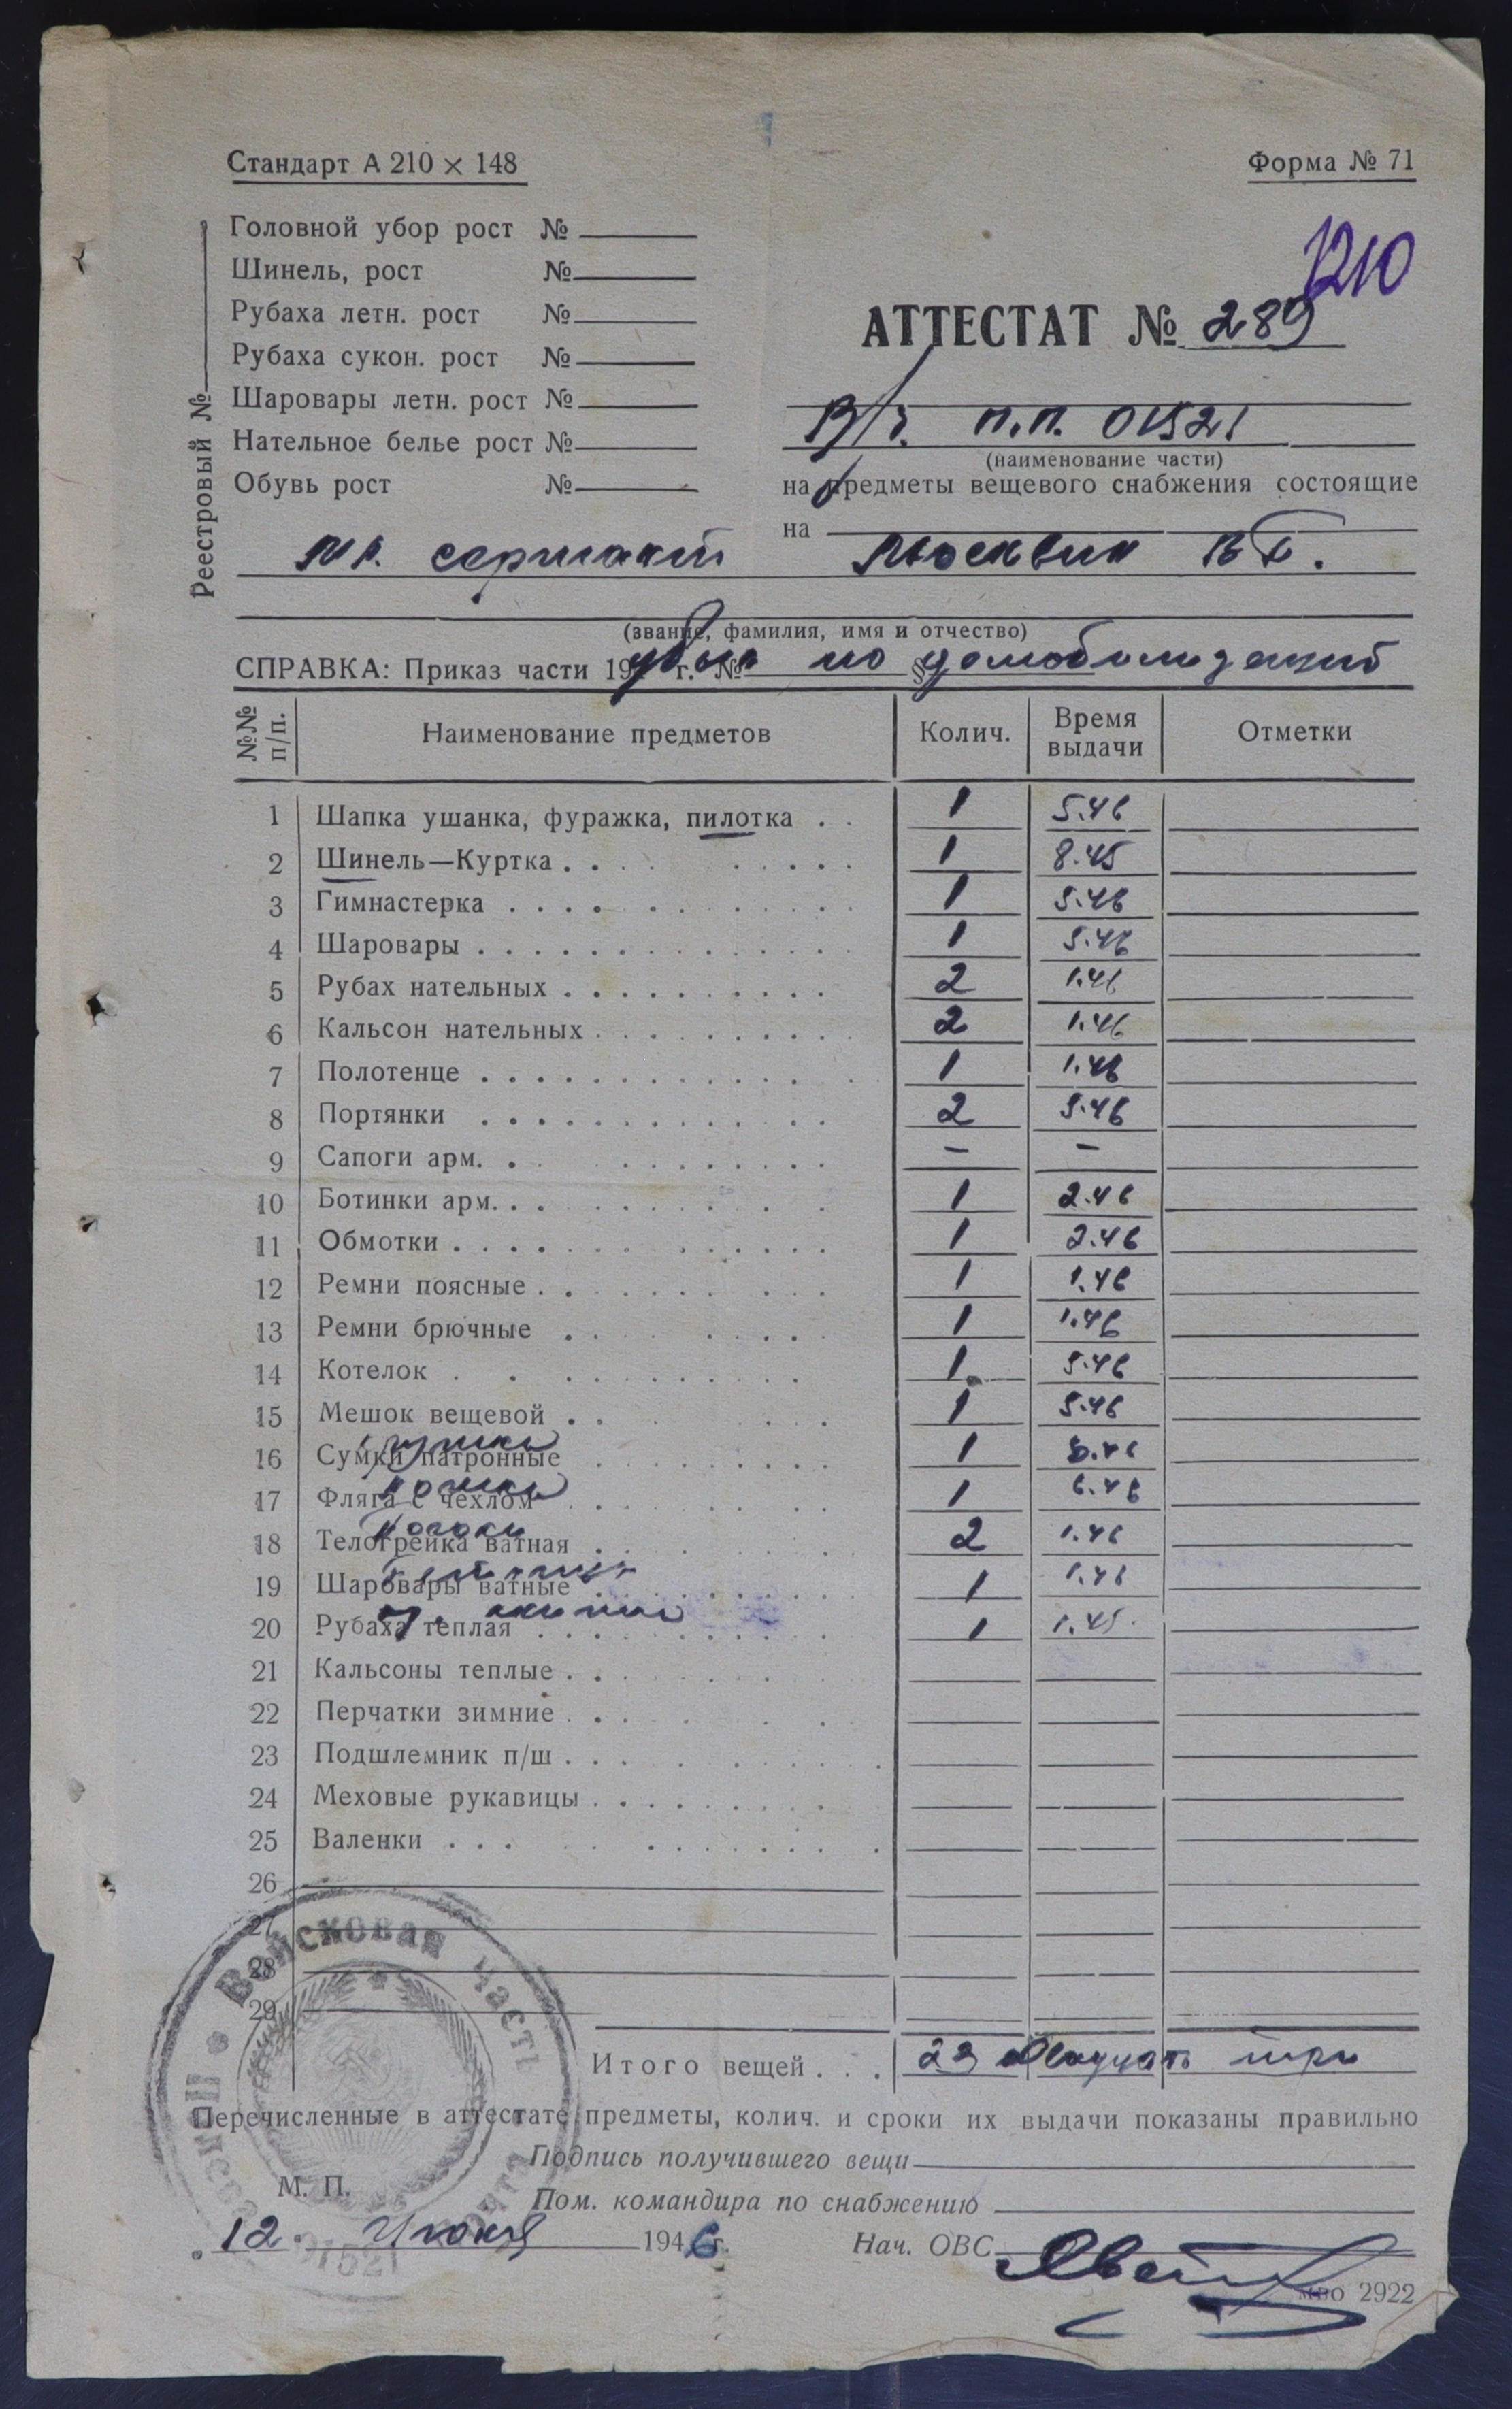 Стандарт А 210 × 148
Форма № 71
Реестровый №
Головной убор рост №
Шинель, рост №
Рубаха летн. рост №
Рубаха сукон. рост №
Шаровары летн. рост №
Нательное белье рост №
Обувь рост №
1210
АТТЕСТАТ № 289
В/ч. п.п. 01521
(наименование части)
на предметы вещевого снабжения состоящие
на
мл. сержант Москвин
(звание, фамилия, имя и отчество)
СПРАВКА: Приказ части 194 г. № § убыл по демобилизации
№№ п/п. Наименование предметов Колич. Время выдачи Отметки
1 Шапка ушанка, фуражка, пилотка 1 5.46
2 Шинель—Куртка 1 8.45
3 Гимнастерка 1 5.46
4 Шаровары 1 5.46
5 Рубах нательных 2 1.46
6 Кальсон нательных 2 1.46
7 Полотенце 1 1.46
8 Портянки 2 5.46
9 Сапоги арм. – –
10 Ботинки арм. 1 2.46
11 Обмотки 1 2.46
12 Ремни поясные 1 1.46
13 Ремни брючные 1 1.46
14 Котелок 1 5.46
15 Мешок вещевой 1 5.46
16 Сумки патронные кружка 1 6.46
17 Фляга с чехлом ложка 1 6.46
18 Телогрейка ватная Погоны 2 1.46
19 Шаровары ватные 1 1.46
20 Рубаха теплая 1 1.45.
21 Кальсоны теплые
22 Перчатки зимние
23 Подшлемник п/ш
24 Меховые рукавицы
25 Валенки
26
27
28
29
Войсковая часть
Полевая почта
01521
Итого вещей 23 двадцать три
Перечисленные в аттестате предметы, колич. и сроки их выдачи показаны правильно
Подпись получившего вещи
М. П.
Пом. командира по снабжению
12. Июня 1946 г.
Нач. ОВС
мво 2922